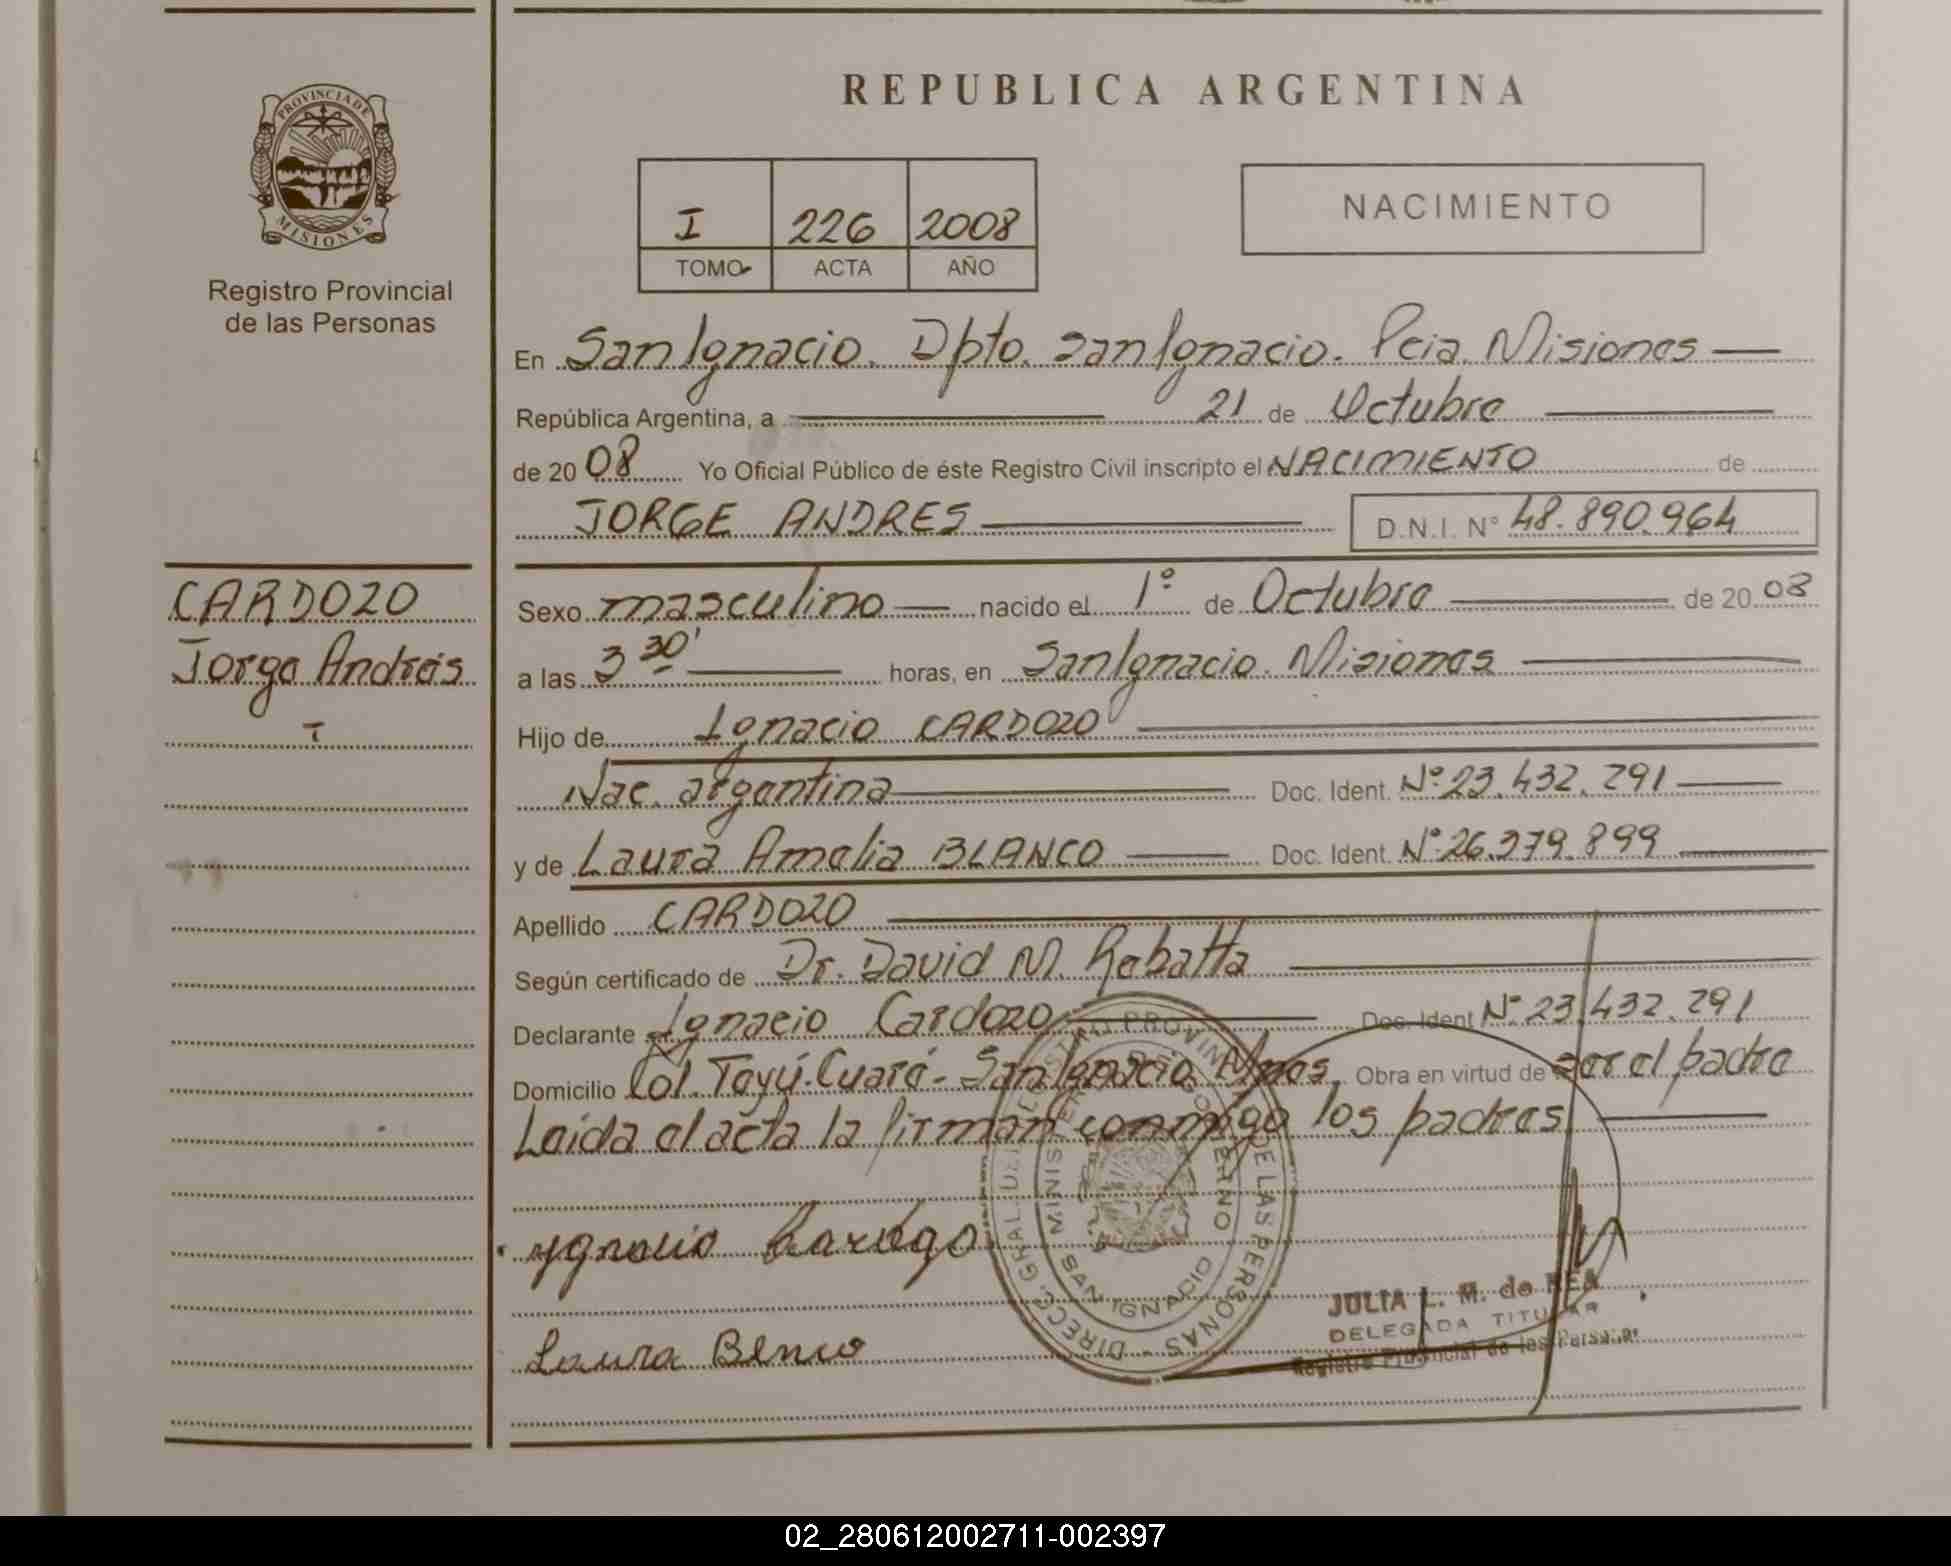 REPUBLICA ARGENTINA
PROVINCIA DE
MISIONES
Registro Provincial
de las Personas
I 226 2008
TOMO ACTA AÑO
NACIMIENTO
En San Ignacio. Dpto. San Ignacio. Pcia. Misiones
República Argentina, a 21 de Octubre
de 20 08 Yo Oficial Público de éste Registro Civil inscripto el NACIMIENTO de
JORGE ANDRES D.N.I. N° 48.890.964
CARDOZO
Jorge Andrés
Sexo masculino nacido el 1º de Octubre de 20 08
a las 3 30' horas, en San Ignacio. Misiones
Hijo de Ignacio CARDOZO
Nac. argentina Doc. Ident. Nº 23.432.291
y de Laura Amelia BLANCO Doc. Ident. Nº 26.379.899
Apellido CARDOZO
Según certificado de Dr. David M. Rebatta
Declarante Ignacio Cardozo Doc. Ident Nº 23.432.291
Domicilio Col. Teyú-Cuaré- San Ignacio Mnes. Obra en virtud de ser el padre
Leída el acta la firman conmigo los padres
Ygnacio
Laura
DIRECC. GRAL. DEL PROVIN DE LAS PERSONAS
MINISTERIO DE GOBIERNO
SAN IGNACIO
JULIA L. M. de REA
DELEGADA TITULAR
Registro Provincial de las Personas
02_280612002711-002397